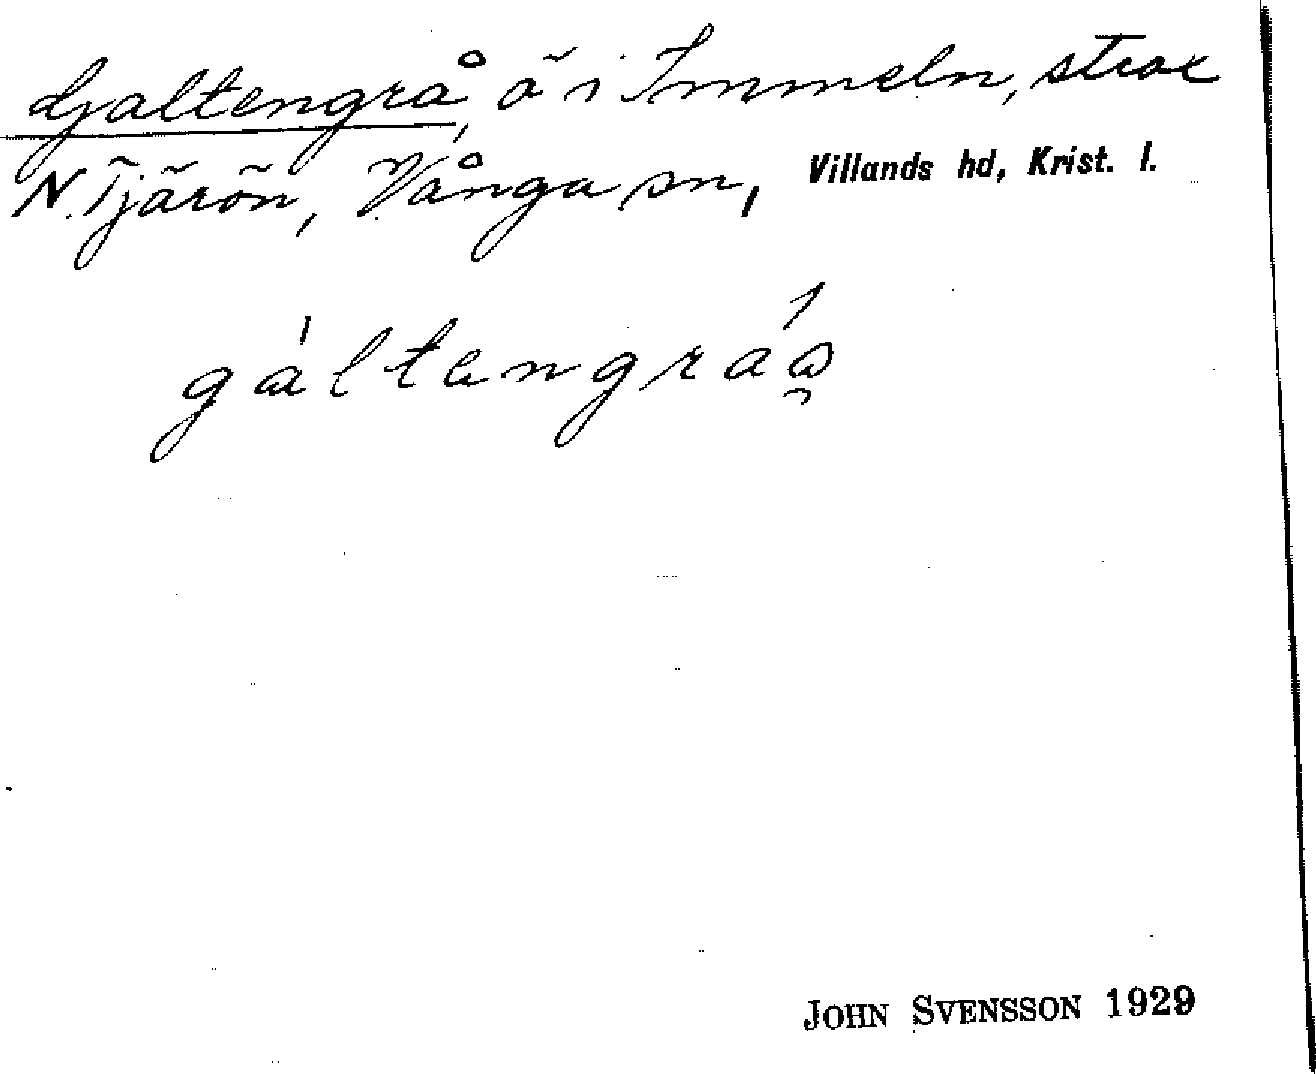 Galtengrå, ö i Immeln, strax
N. Tjärön, Vånga sn, Villands hd, Krist. l.
gáltengráa̯
JOHN SVENSSON 1929